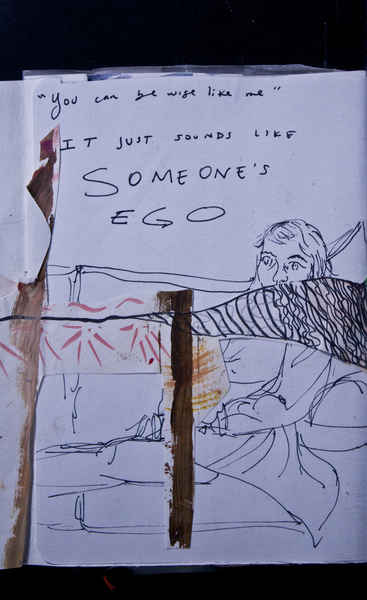 "You can be wise like me"
IT JUST SOUNDS LIKE
SOMEONE'S
EGO